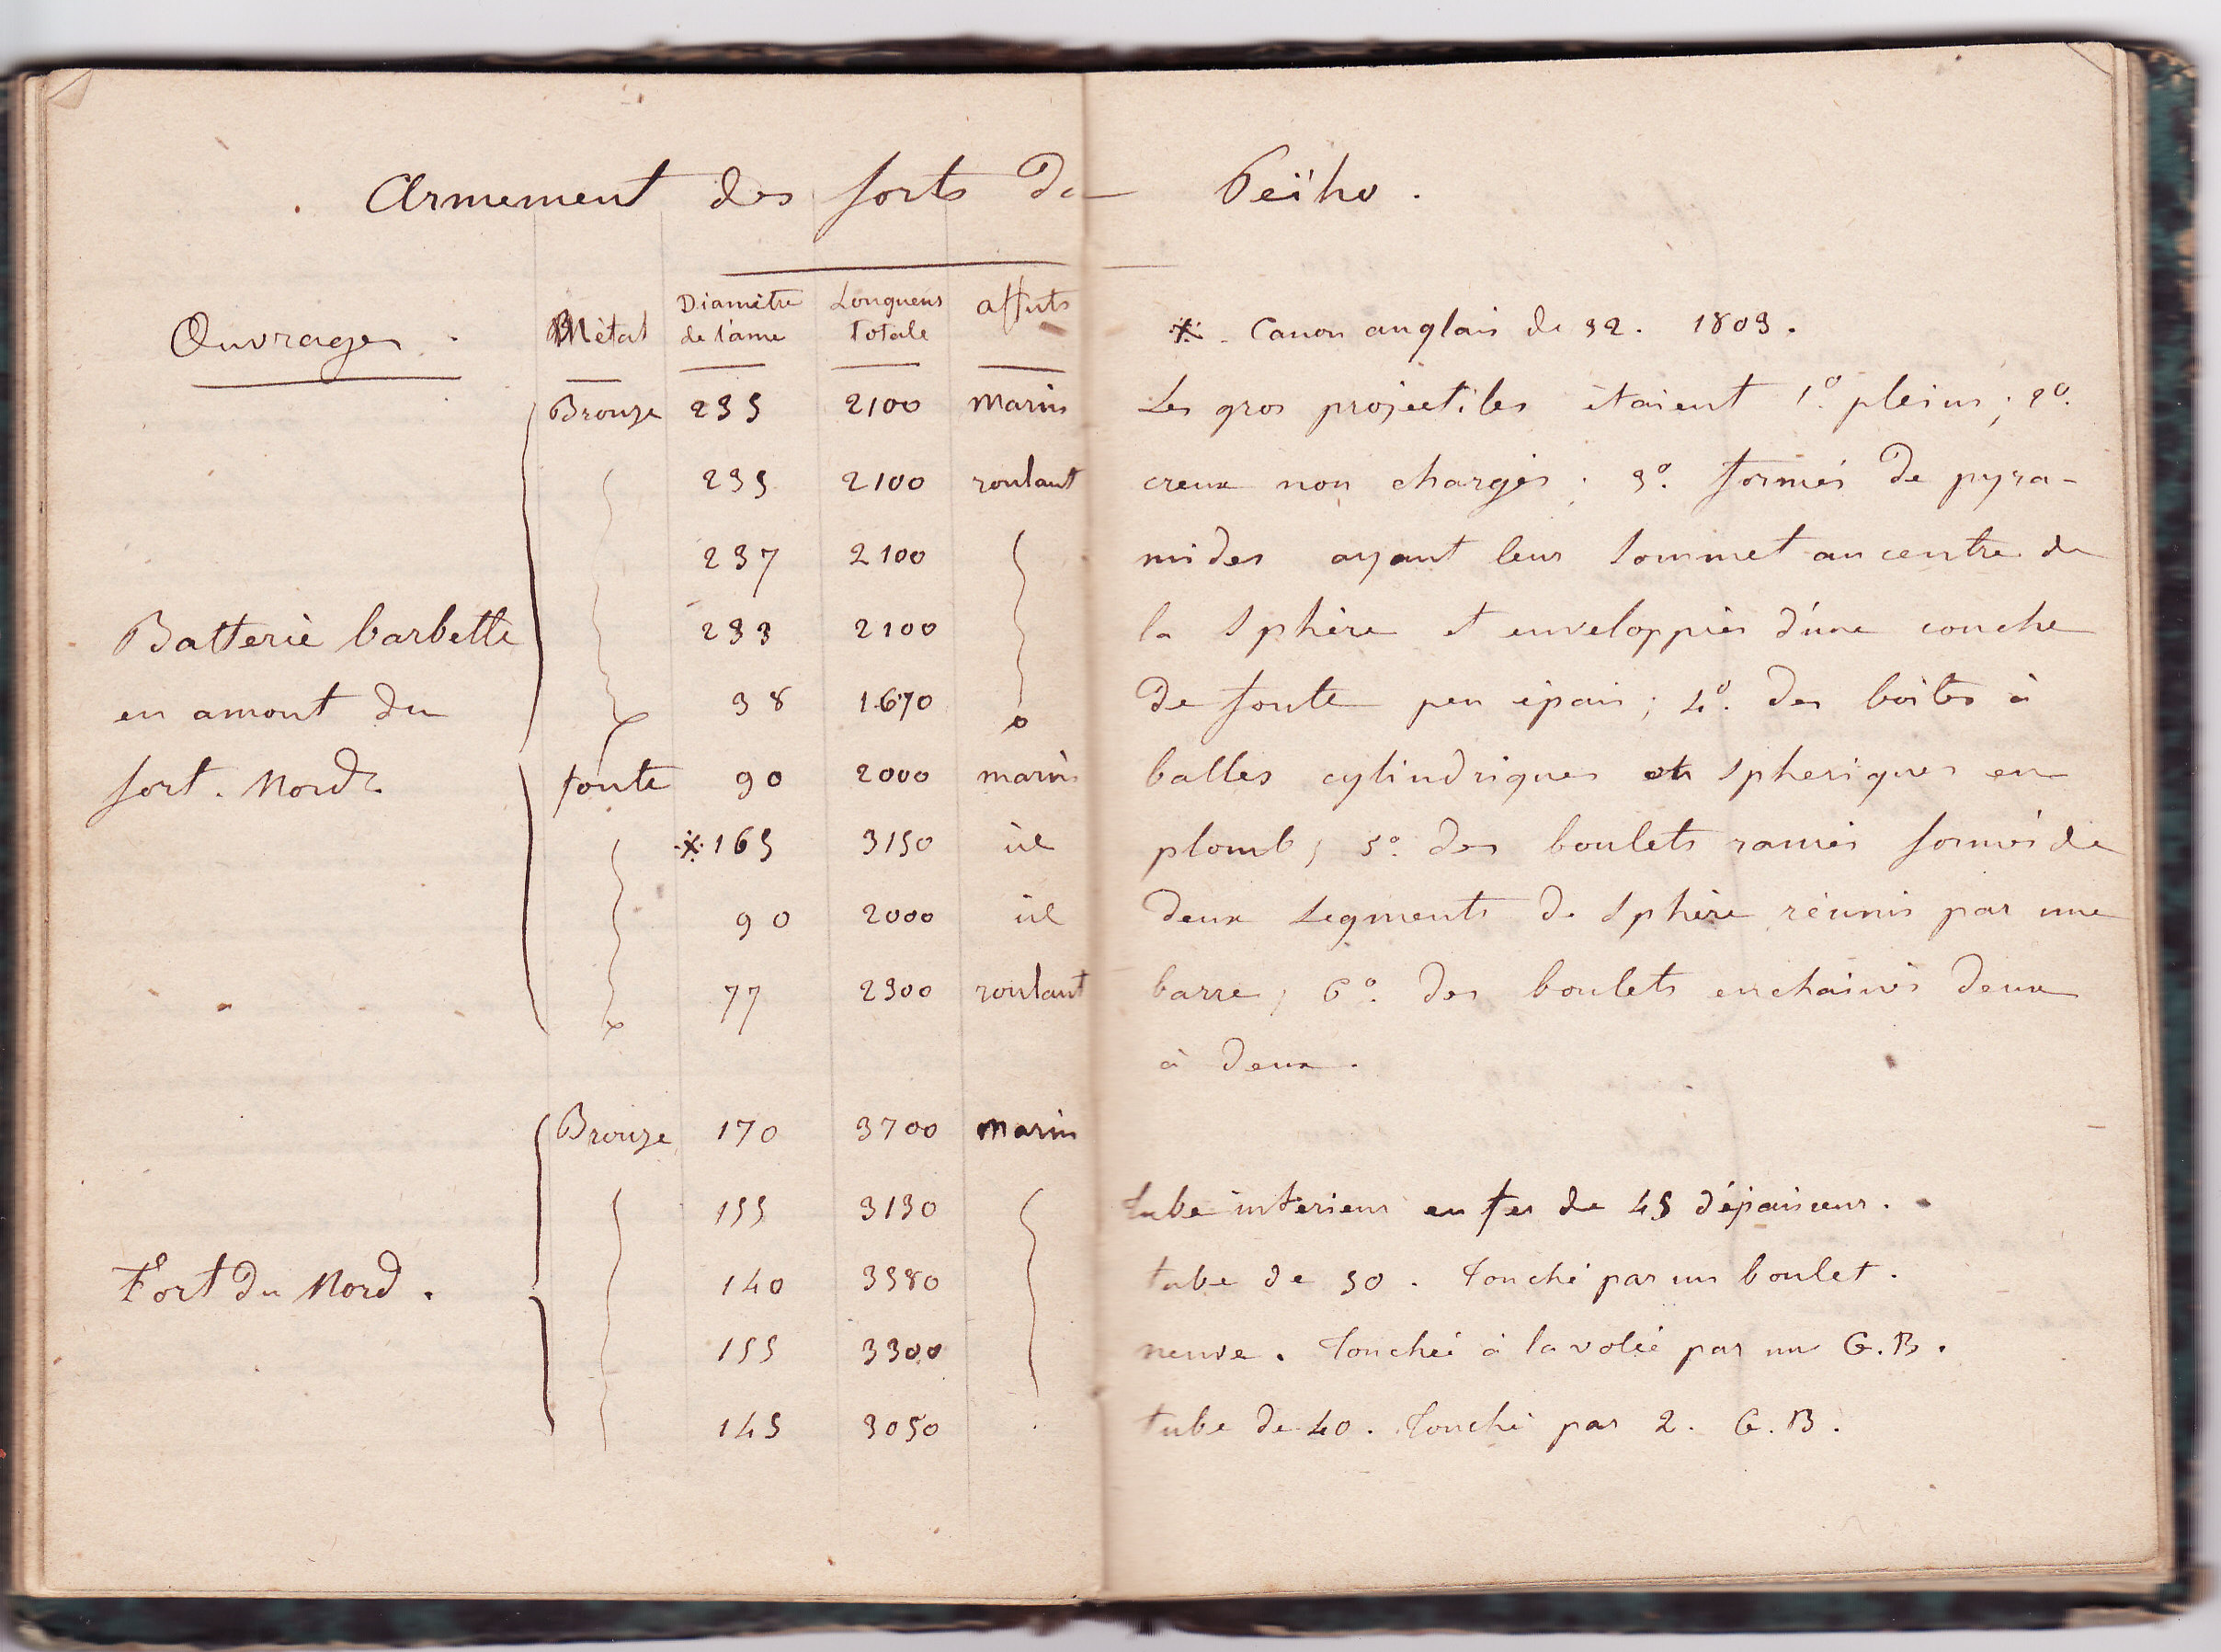 Armement des forts du Peïho.
Ouvrages. Métal Diamètre de l'âme Longueur Totale affuts
Bronze 235 2100 marin
235 2100 roulant
237 2100
Batterie barbette 233 2100
en amont du 38 1670
fort. Nord. fonte 90 2000 marin
* 165 3150 id
90 2000 id
77 2300 roulant
Bronze 170 3700 marin
155 3130
Fort du Nord. 140 3580
155 3300
145 3050
* - Canon anglais de 32. 1803.
Les gros projectiles étaient 1º. pleins; 2º.
creux non chargés; 3º. formés de pyra-
mides ayant leur sommet au centre de
la sphère et enveloppées d'une couche
de fonte peu épais; 4º. des boites à
balles cylindriques et spheriques en
plomb; 5º. des boulets ramés formés de
deux segments de sphère réunis par une
barre; 6º. des boulets enchainés deux
à deux.
tube intérieur en fer de 45 d'épaisseur.
tube de 50. touché par un boulet.
neuve. touchée à la volée par un G.B.
tube de 40. touché par 2. G.B.